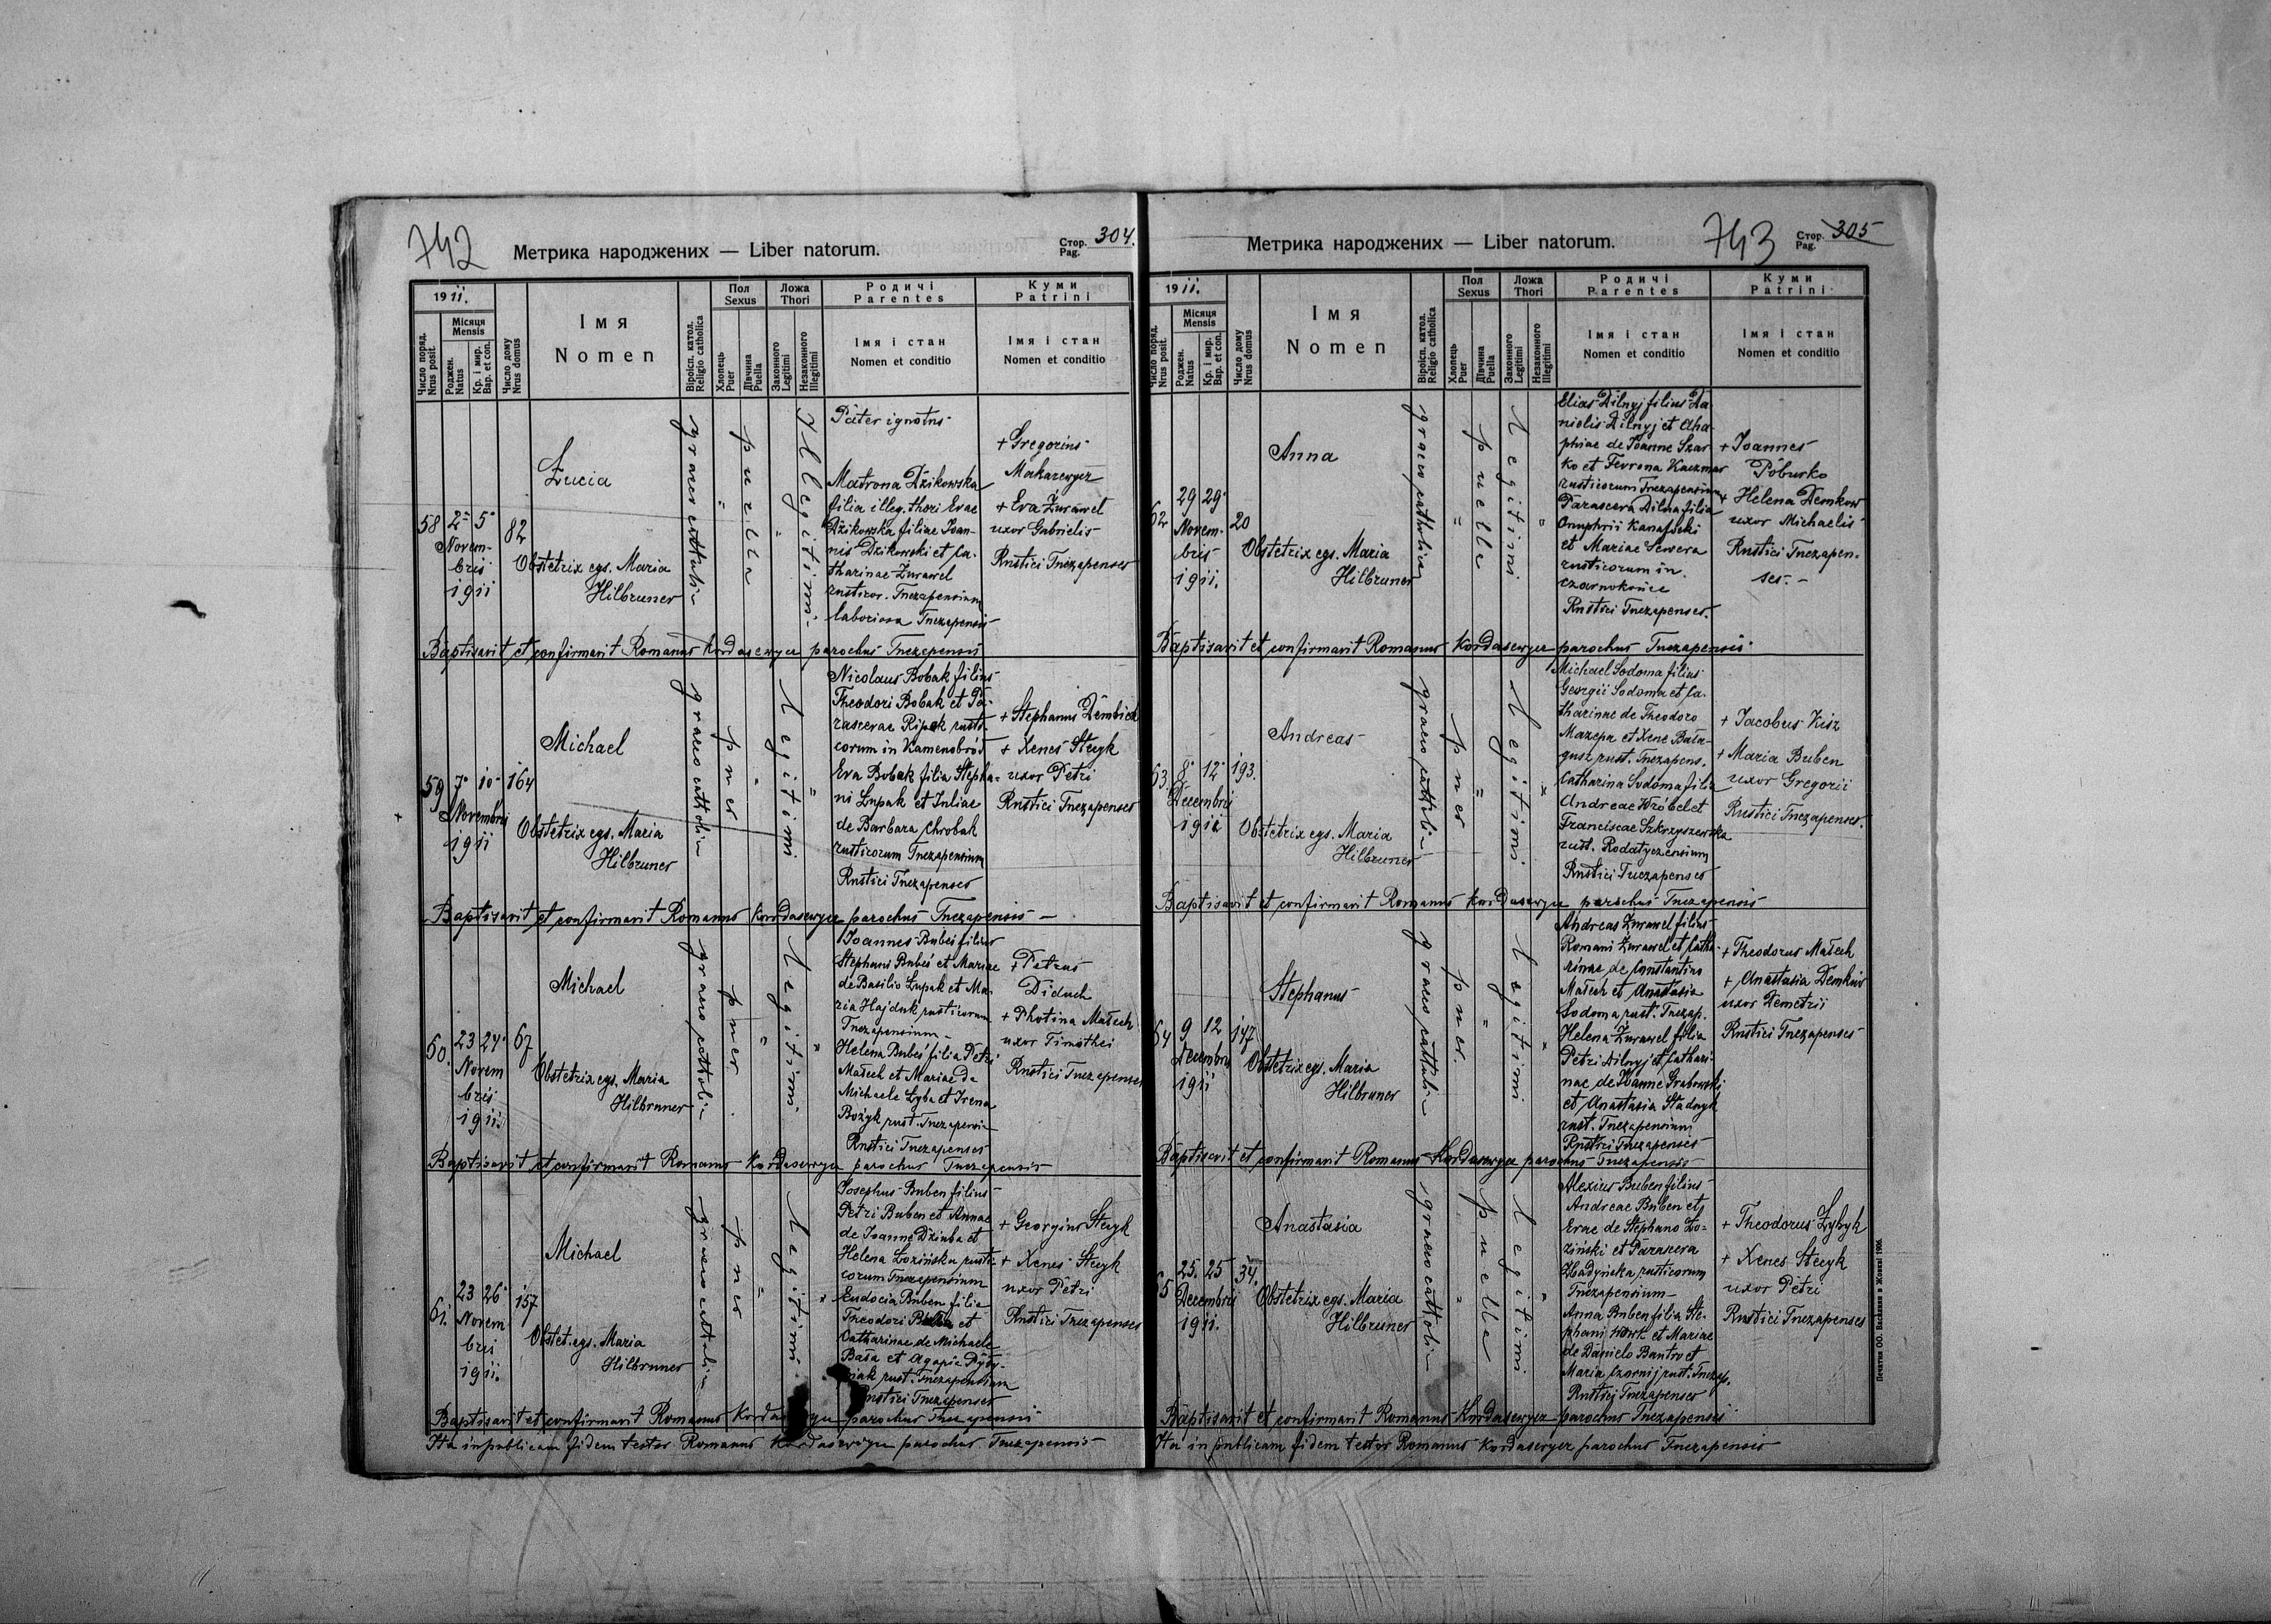 742
Метрика народжених — Liber natorum.
Стор. 304.
Pag.
19 11.
Число поряд.
Nrus posit.
Місяця
Mensis
Роджен.
Natus
Кр. і мир.
Bap. et con.
Число дому
Nrus domus
Імя
Nomen
Віроісп. катол.
Religio catholica
Пол
Sexus
Хлопець
Puer
Дівчина
Puella
Ложа
Thori
Законного
Legitimi
Незаконного
Illegitimi
Родичі
Parentes
Імя і стан
Nomen et conditio
Куми
Patrini
Імя і стан
Nomen et conditio
58
2 5
Novem-
bris
1911
82
Lucia
Obstetrix egs. Maria
Hilbruner
graeco catholica
puella
Illegitimi
Pater ignotus
Matrona Dzikowska
filia illeg. thori Evae
Dzikowska filiae Joan-
nis Dzikowski et Ca-
tharinae Żurawel
rusticor. Tuczapensium
laboriosa Tuczapensis
+ Gregorius
Makarewycz
+ Eva Żurawel
uxor Gabrielis
Rustici Tuczapenses
Baptisavit et confirmavit Romanus Kordasewycz parochus Tuczapensis
59
7 10
Novembris
1911
164
Michael
Obstetrix egs. Maria
Hilbruner
graeco catholica
puer
Legitimi
Nicolaus Bobak filius
Theodori Bobak et Pa-
rascevae Ripak rusti-
corum in Kamenobród
Eva Bobak filia Stepha-
ni Łupak et Juliae
de Barbara Chrobak
rusticorum Tuczapensium
Rustici Tuczapenses
+ Stephanus Dembick
+ Xenes Stecyk
uxor Petri
Rustici Tuczapenses
Baptisavit et confirmavit Romanus Kordasewycz parochus Tuczapensis —
60.
23 24
Novem
bris
1911.
67
Michael
Obstetrix egs. Maria
Hilbruner
graeco catholica
puer.
Legitimi
Joannes Bubes filius
Stephani Bubes et Mariae
de Basilio Łupak et Ma-
ria Hajduk rusticorum
Tuczapensium
Helena Bubes filia Petri
Małech et Mariae de
Michaele Zyba et Irena
Bożyk rust. Tuczapensis
Rustici Tuczapenses
+ Petrus
Diduch
+ Photina Małech
uxor Timothei
Rustici Tuczapenses
Baptisavit et confirmavit Romanus Kordasewycz parochus Tuczapensis
61.
23 26
Novem
bris
1911.
157
Michael
Obstet. egs. Maria
Hilbruner
graeco catholica
puer
Legitimi
Josephus Buben filius
Petri Buben et Annae
de Joanne Dziuba et
Helena Łozińska rusti-
corum Tuczapensium
Eudocia Buben filia
Theodori et
Catharinae de Michaele
Bała et Agapia
rust. Tuczapensium
Rustici Tuczapenses
+ Georgius Stecyk
+ Xenes Stecyk
uxor Petri
Rustici Tuczapenses
Baptisavit et confirmavit Romanus Kordasewycz parochus Tuczapensis
Ita in publicam fidem testor Romanus Kordasewycz parochus Tuczapensis
Метрика народжених — Liber natorum.
743
Стор. 305
Pag.
19 11.
Число поряд.
Nrus posit.
Місяця
Mensis
Роджен.
Natus
Кр. і мир.
Bap. et con.
Число дому
Nrus domus
Імя
Nomen
Віроісп. катол.
Religio catholica
Пол
Sexus
Хлопець
Puer
Дівчина
Puella
Ложа
Thori
Законного
Legitimi
Незаконного
Illegitimi
Родичі
Parentes
Імя і стан
Nomen et conditio
Куми
Patrini
Імя і стан
Nomen et conditio
62
29 29
Novem-
bris
1911.
20
Anna
Obstetrix egs. Maria
Hilbruner
graeco catholica
puella
Legitimi
Elias Dilnyj filius Da-
nielis Dilnyj et Aha-
phiae de Joanne Szar
ko et Fevrona Kaczmar
rusticorum Tuczapensium
Parasceva Dilna filia
Onuphrii Kanafocki
et Mariae Sewera
rusticorum in
Czarnokońce
Rustici Tuczapenses.
+ Joannes
Poburko
+ Helena Demkow
uxor Michaelis
Rustici Tuczapen-
ses. -
Baptisavit et confirmavit Romanus Kordasewycz parochus Tuczapensis
63
8 12
Decembris
1911
193.
Andreas
Obstetrix egs. Maria
Hilbruner
graeco catholica
puer
Legitimi
Michael Sodoma filius
Georgii Sodoma et Ca-
tharinae de Theodoro
Mazepa et Xene Bała-
gusz rust. Tuczapens.
Catharina Sodoma filia
Andreae Wróbel et
Franciscae Szkrzyszewska
rust. Rodatyczensium
Rustici Tuczapenses
+ Jacobus Kisz
+ Maria Buben
uxor Gregorii
Rustici Tuczapenses.
Baptisavit et confirmavit Romanus Kordasewycz parochus Tuczapensis
64
9 12
Decembris
1911
147
Stephanus
Obstetrix egs. Maria
Hilbruner
graeco catholica
puer.
Legitimi
Andreas Żurawel filius
Romani Żurawel et Catha-
rinae de Constantino
Małech et Anastasia
Sodoma rust. Tuczap.
Helena Żurawel filia
Petri Dilnyj et Cathari-
nae de Joanne Grabowski
et Anastasia Stadnyk
rust. Tuczapensium
Rustici Tuczapenses
+ Theodorus Małech
+ Anastasia Demkiw
uxor Demetrii
Rustici Tuczapenses
Baptisavit et confirmavit Romanus Kordasewycz parochus Tuczapensis
65
25. 25
Decembris
1911.
34.
Anastasia
Obstetrix egs. Maria
Hilbruner
graeco catholica
puella
Legitimi
Alexius Buben filius
Andreae Buben et
Evae de Stephano Ło-
ziński et Parasceva
Hadyńska rusticorum
Tuczapensium
Anna Buben filia Ste-
phani Wowk et Mariae
de Danielo Bantro et
Maria Czornij rust. Tuczap.
Rustici Tuczapenses
+ Theodorus Zybyh
+ Xenes Stecyk
uxor Petri
Rustici Tuczapenses
Baptisavit et confirmavit Romanus Kordasewycz parochus Tuczapensis
Ita in publicam fidem testor Romanus Kordasewycz parochus Tuczapensis
Печатня ОО. Василіян в Жовкві 1906.